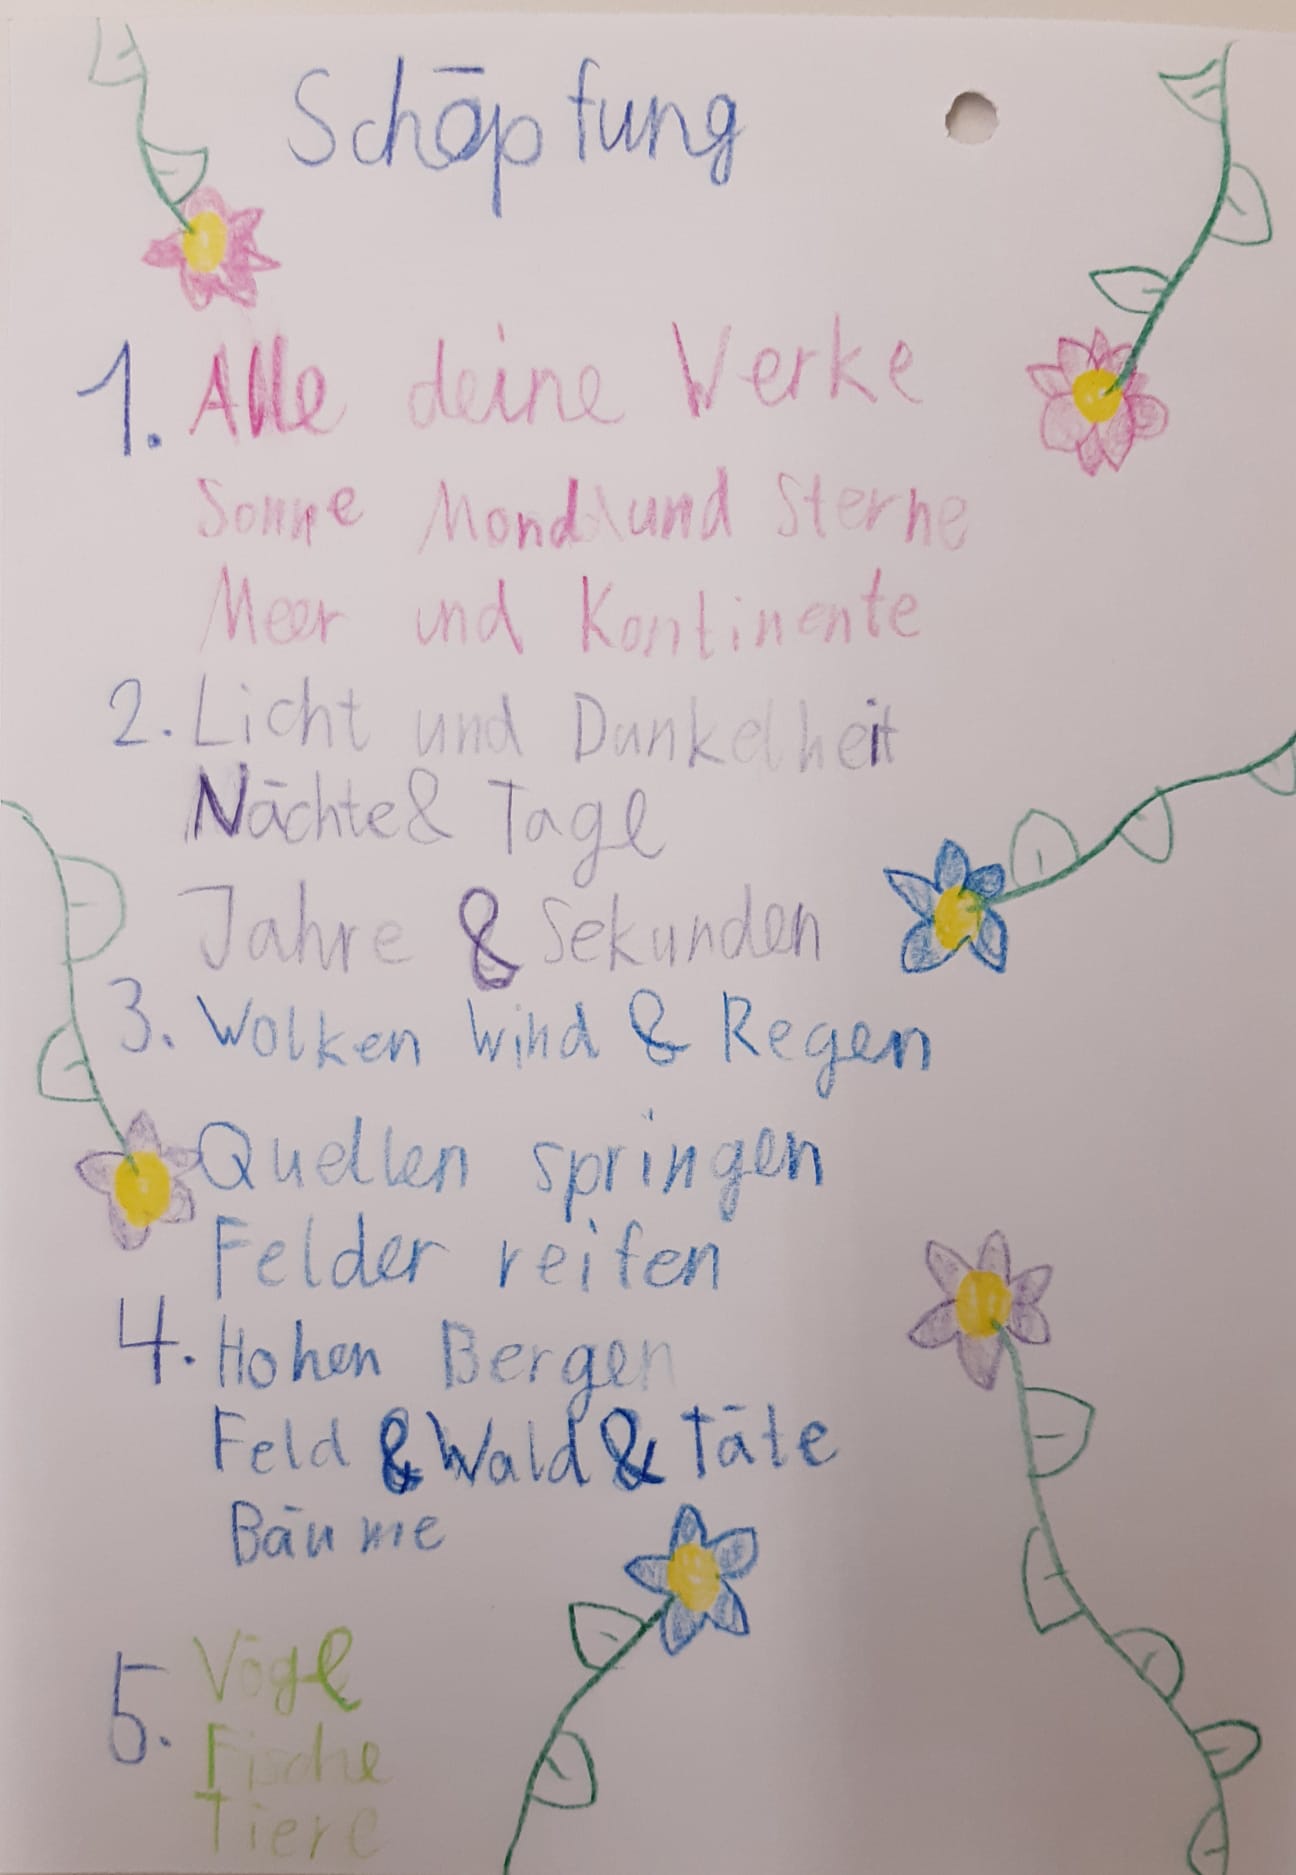 Schöpfung
1. Alle deine Werke
Sonne Mond und Sterne
Meer und Kontinente
2. Licht und Dunkelheit
Nächte & Tage
Jahre & Sekunden
3. Wolken Wind & Regen
Quellen springen
Felder reifen
4. Hohen Bergen
Feld & Wald & Täle
Bäume
5. Vögel
Fische
Tiere